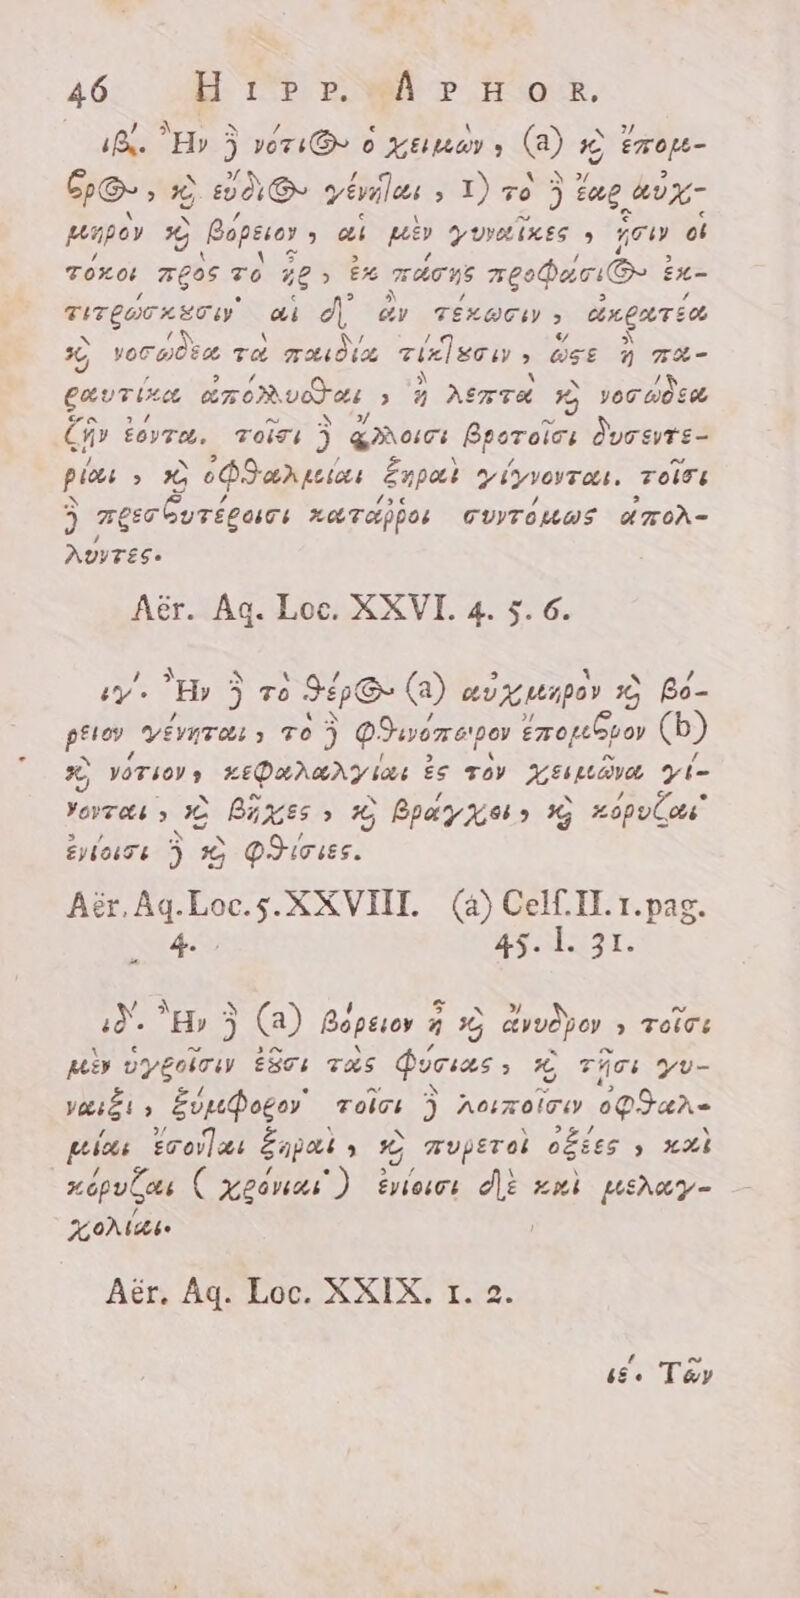 46 HIPP. APHOR.
ιβ´. Ἢν ȣ̓͂ νότιος ὁ χειμὼν, (a) καὶ ἔπομ-
βρος, καὶ εὔδιος γένηται, 1) τὸ δὲ ἔαρ αὐχ-
μηρὸν καὶ βόρειον, αἱ μὲν γυναῖκες, ᾗσιν οἱ
τόκοι πρὸς τὸ ἦρ, ἐκ πάσης προφάσιος ἐκ-
τιτρώσκουσιν· αἱ δ' ἂν τέκωσιν, ἀκρατέα
καὶ νοσώδεα τὰ παιδία τίκτουσιν, ὥστε ἢ πα-
ραυτίκα ἀπόλλυσθαι, ἢ λεπτὰ καὶ νοσώδεα
ζῆν ἐόντα. τοῖσι δὲ ἄλλοισι βροτοῖσι δυσεντε-
ρίαι, καὶ ὀφθαλμίαι ξηραὶ γίγνονται. τοῖσι
δὲ πρεσβυτέροισι κατάῤῥοι συντόμως ἀπολ-
λύντες.
Aër. Aq. Loc. XXVI. 4. 5. 6.
ιγ´. Ἢν δὲ τὸ θέρος (a) αὐχμηρὸν καὶ βό-
ρειον γένηται, τὸ δὲ φθινόπωρον ἔπομβρον (b)
καὶ νότιον, κεφαλαλγίαι ἐς τὸν χειμῶνα γί-
νονται, καὶ βῆχες, καὶ βράγχοι, καὶ κόρυζαι·
ἐνίοισι δὲ καὶ φθίσιες.
Aër. Aq. Loc. 5. XXVIII. (a) Celſ. II. 1. pag.
4. 45. l. 31.
ιδ´. Ἢν δὲ (a) βόρειον ᾖ καὶ ἄνυδρον, τοῖσι
μὲν ὑγροῖσιν ἐοῦσι τὰς φύσιας, καὶ τῇσι γυ-
ναιξὶ, ξύμφορον· τοῖσι δὲ λοιποῖσιν ὀφθαλ-
μίαι ἔσονται ξηραὶ, καὶ πυρετοὶ ὀξέες, καὶ
κόρυζαι ( χρόνιαι· ) ἐνίοισι δὲ καὶ μελαγ-
χολίαι.
Aër. Aq. Loc. XXIX. 1. 2.
ιέ. Τῶν